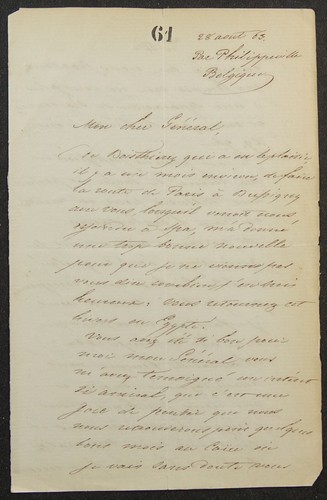 61
28 août 63.
Par Philippeville
Belgique
Mon cher Général,
De qui a eu le plaisir
il y a un mois environ, de faire
la route de Paris à
avec vous, lorsqu'il venait nous
rejoindre à Spa, m'a donné
une trop bonne nouvelle
pour que je ne vienne pas
vous dire combien j'en suis
heureux: vous retournez cet
hiver en Égypte!
Vous avez été si bon pour
moi mon Général, vous
m'avez témoigné un intérêt
si amical, que c'est une
joie de penser que nous
nous retrouverons pour quelques
bons mois au Caire où
je vais sans doute nous